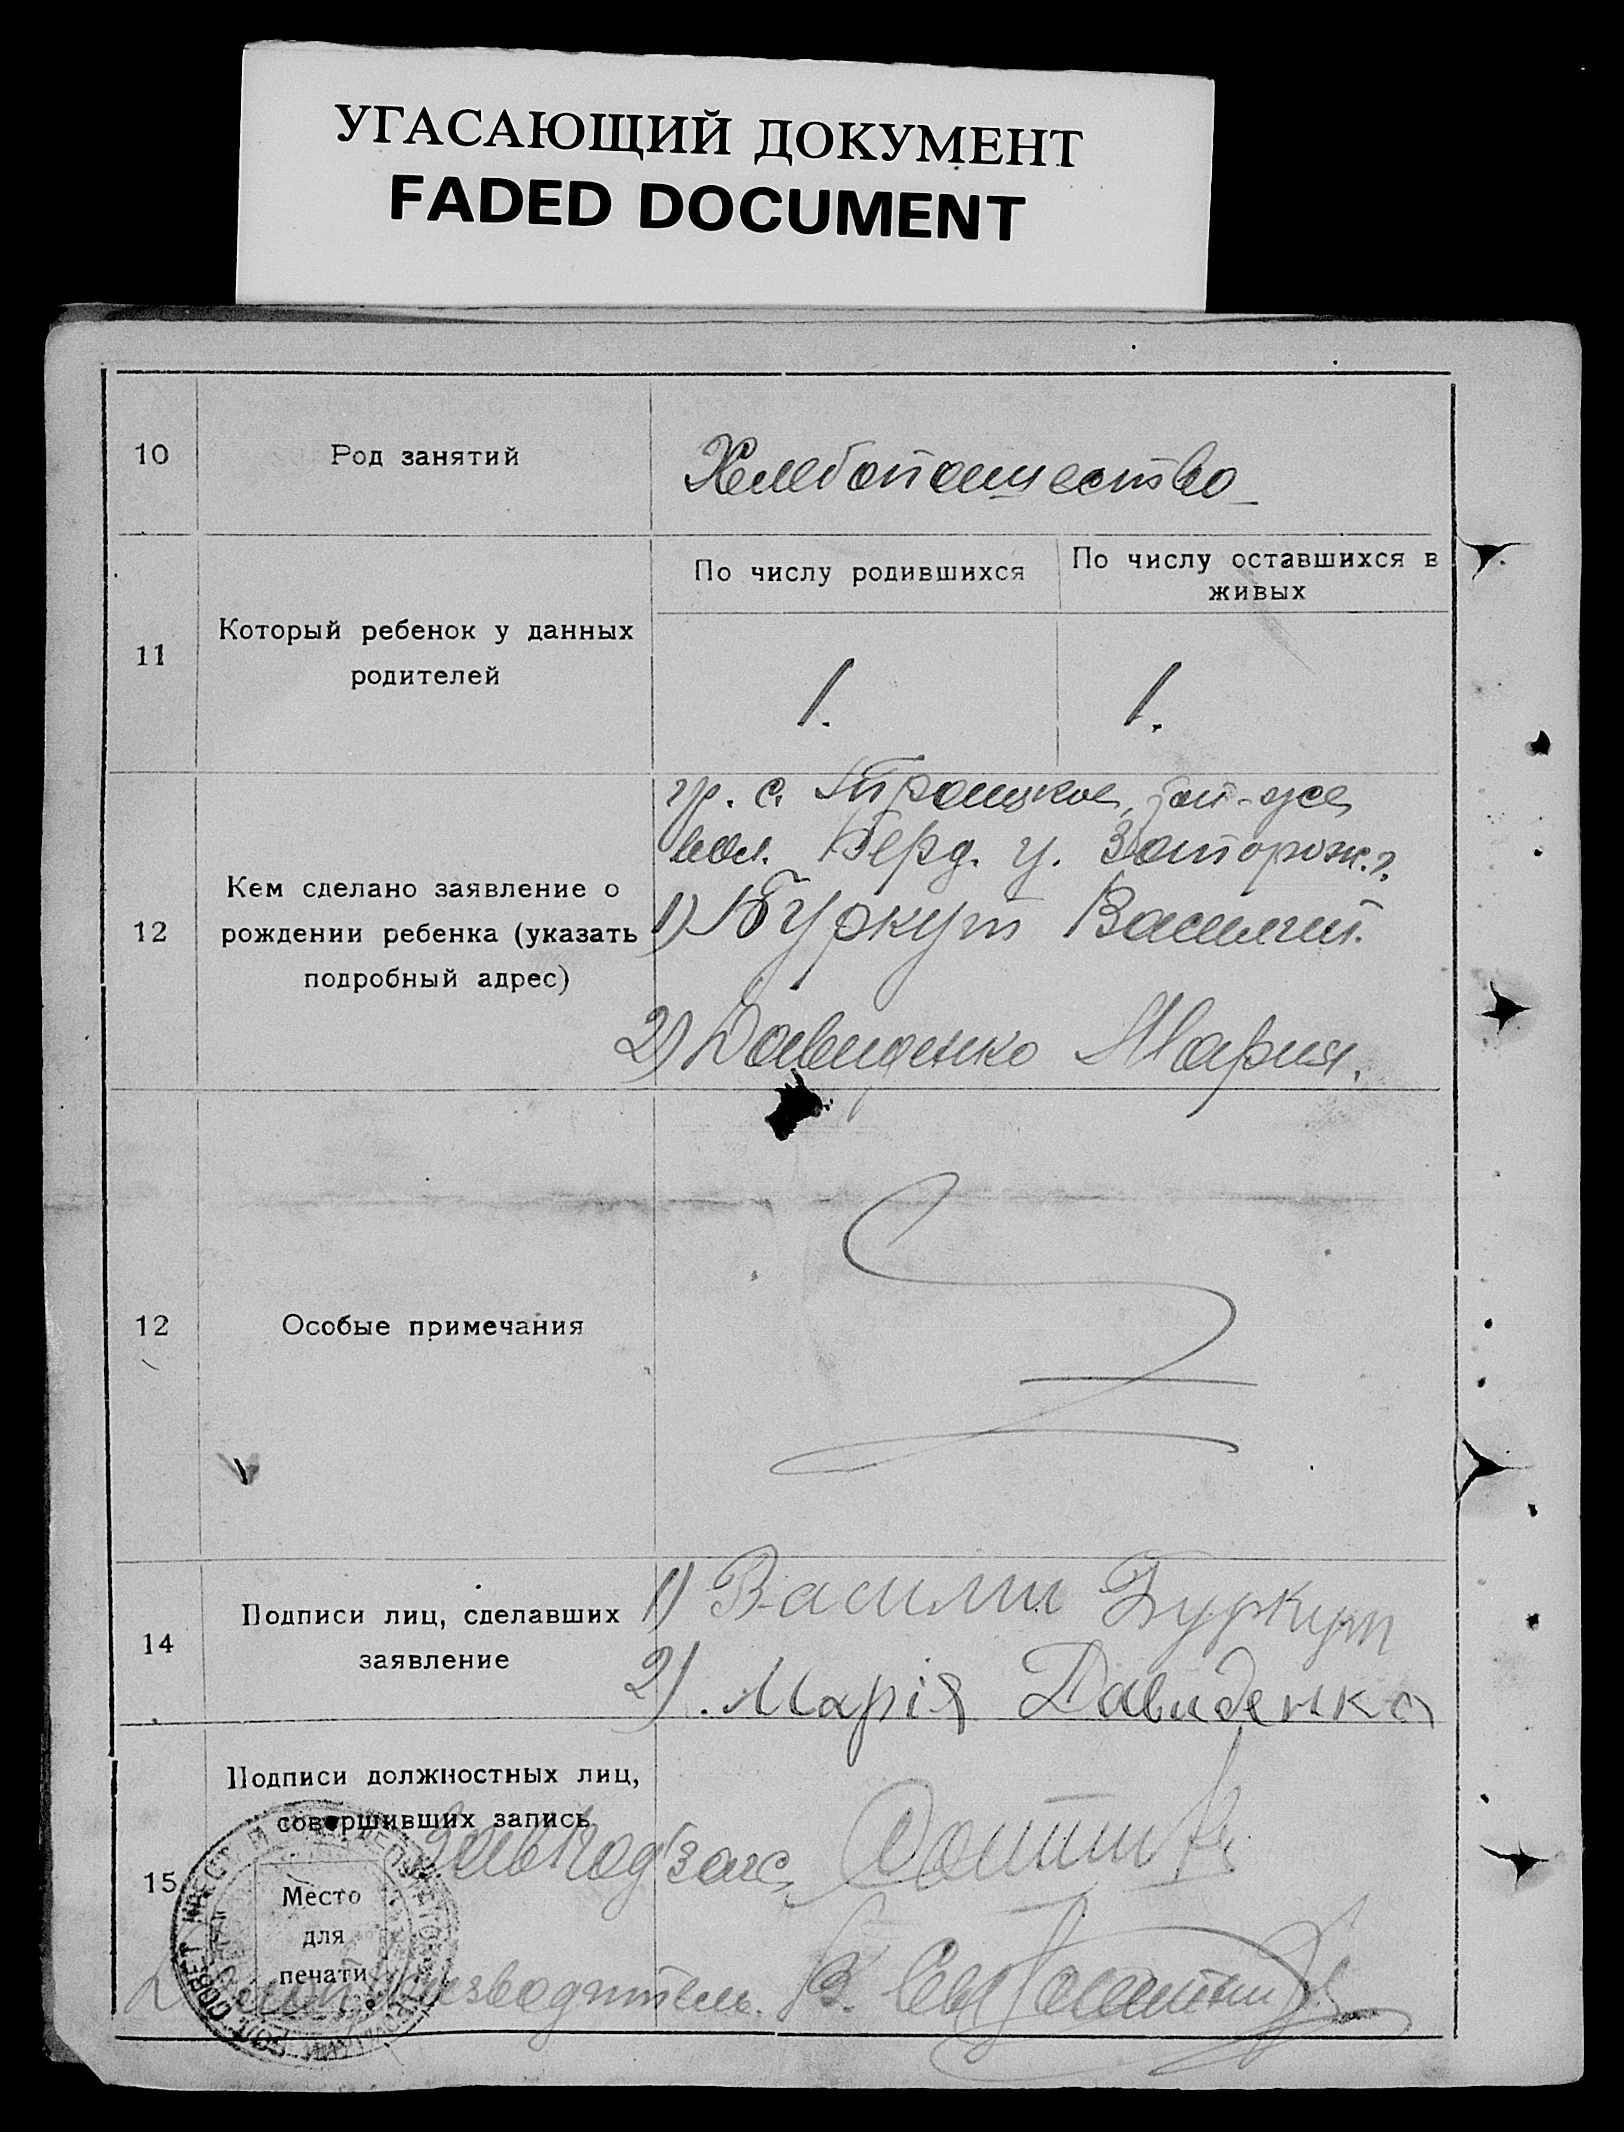 УГАСАЮЩИЙ ДОКУМЕНТ
FADED DOCUMENT
10
Род занятий
Хлебопашество
11
Который ребенок у данных
родителей
По числу родившихся
По числу оставшихся в
живых
1.
1.
12
Кем сделано заявление о
рождении ребенка (указать
подробный адрес)
гр. с. Троицкое,
вол. Берд. у. Запорож. г.
1) Буркут Василий.
2) Давиденко Мария.
12
Особые примечания
14
Подписи лиц, сделавших
заявление
1) Василии Буркут
2). Марія Давиденко
15
Подписи должностных лиц,
совершивших запись
Завподзагс
Место
для
печати
Делопроизводитель.